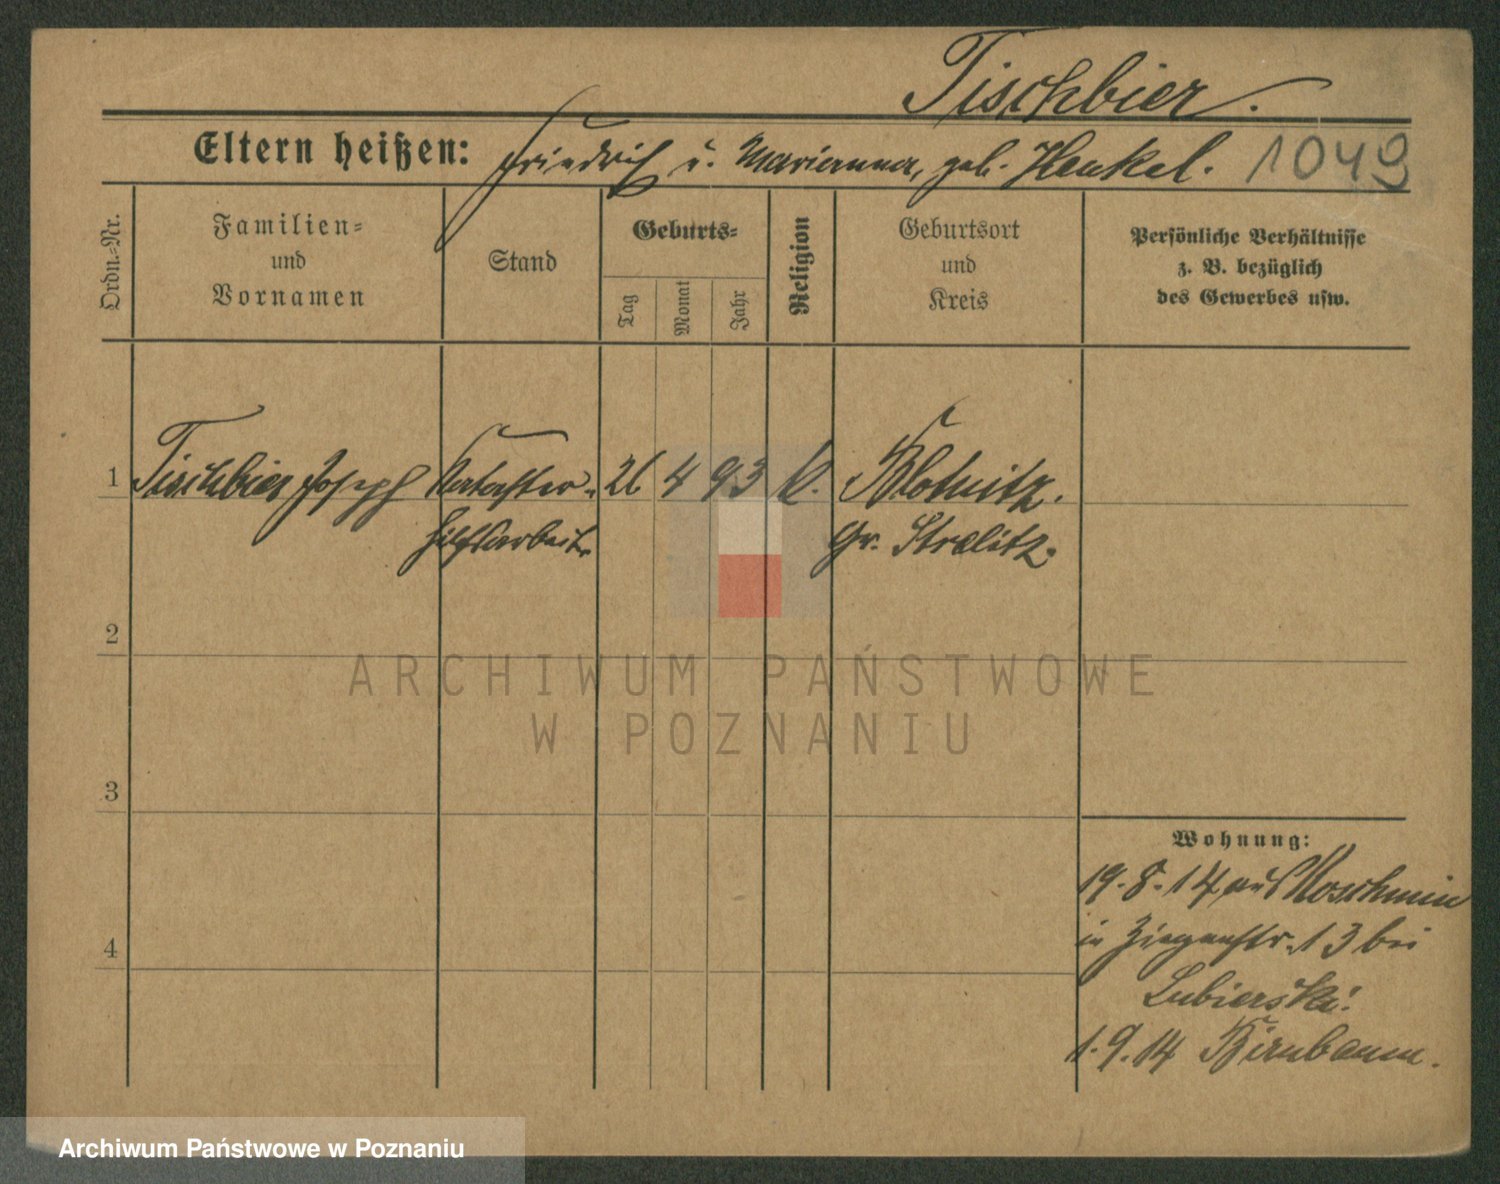 Tischbier.
Eltern heißen: Friedrich u. Marianna, geb. Henkel. 1049
Ordn.-Nr.
Familien-
und
Vornamen
Stand
Geburts-
Tag
Monat
Jahr
Religion
Geburtsort
und
Kreis
Persönliche Verhältnisse
z. B. bezüglich
des Gewerbes usw.
1 Tischbier Joseph Kataster- 26 4 93 k. Blotnitz.
hilfsarbeiter Gr. Strelitz.
2
ARCHIWUM PAŃSTWOWE
W POZNANIU
3
Wohnung:
19.8.14 aus Koschmin
in Ziegenstr. 13 bei
Lubierski.
4
1.9.14 Birnbaum.
Archiwum Państwowe w Poznaniu